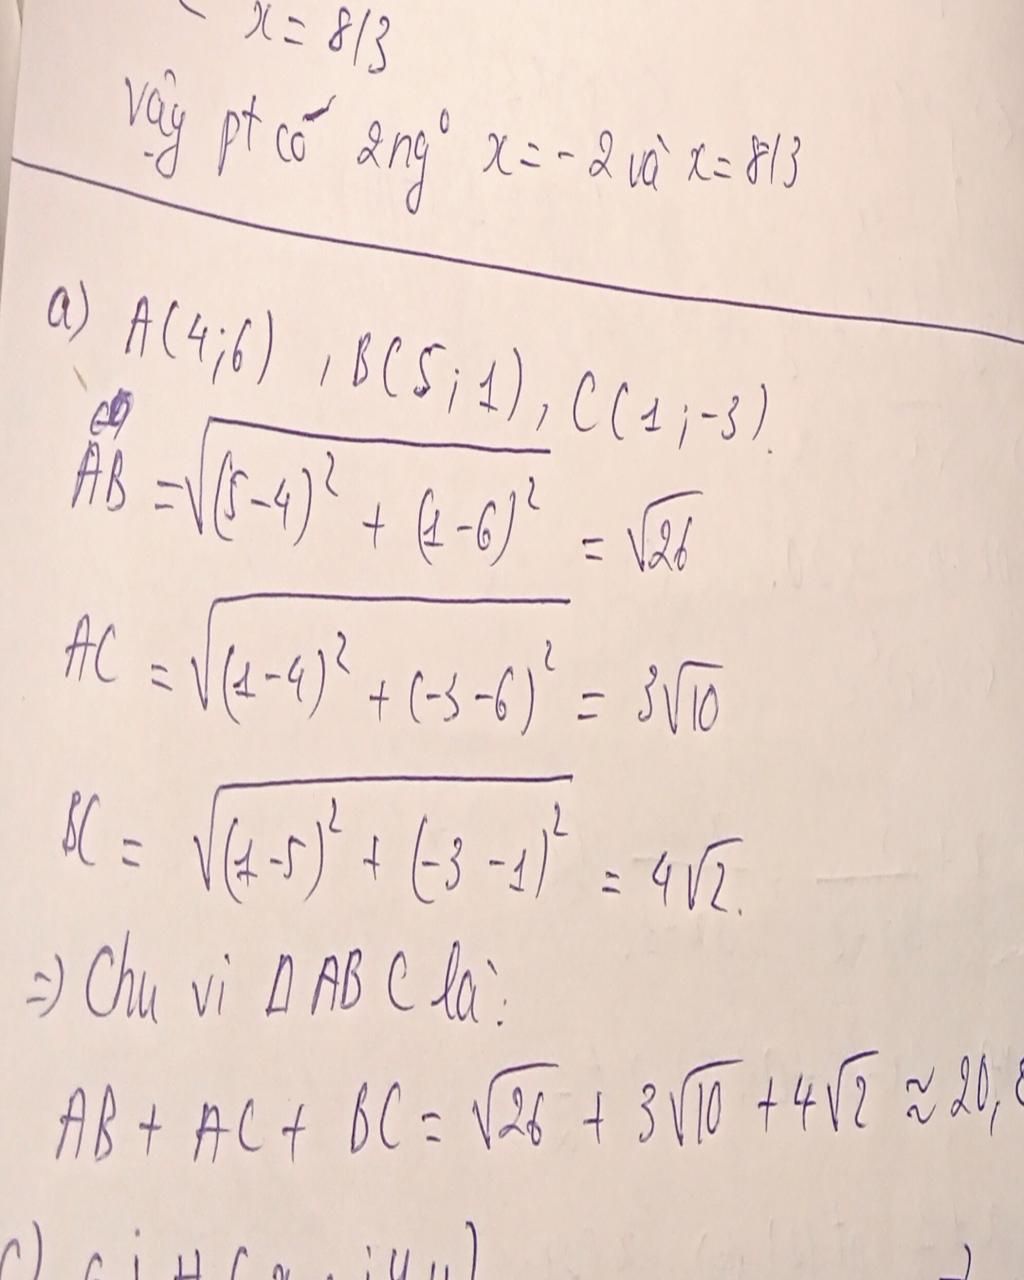 x = 8/3
vậy pt có 2 ng° x = -2 và x = 8/3
a) A(4;6) , B(5;1) , C(1;-3).
AB = √(5-4)² + (1-6)² = √26
AC = √(1-4)² + (-3-6)² = 3√10
BC = √(1-5)² + (-3-1)² = 4√2.
=) Chu vi Δ ABC là:
AB + AC + BC = √26 + 3√10 + 4√2 ≈ 20,